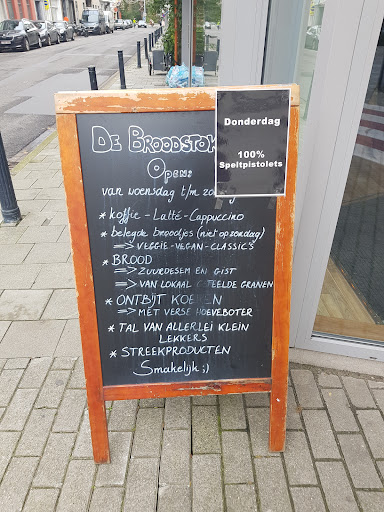 DE BROODSTO
Donderdag
100%
Speltpistolets
OPEN:
van woensdag t/m
* koffie - Latté - Cappuccino
* belegde broodjes (niet op zondag)
=> VEGGIE - VEGAN - CLASSICS
* BROOD
=> ZUURDESEM EN GIST
=> VAN LOKAAL GETEELDE GRANEN
* ONTBIJT KOEKEN
=> MET VERSE HOEVEBOTER
* TAL VAN ALLERLEI KLEIN
LEKKERS
* STREEKPRODUCTEN
Smakelijk ;)